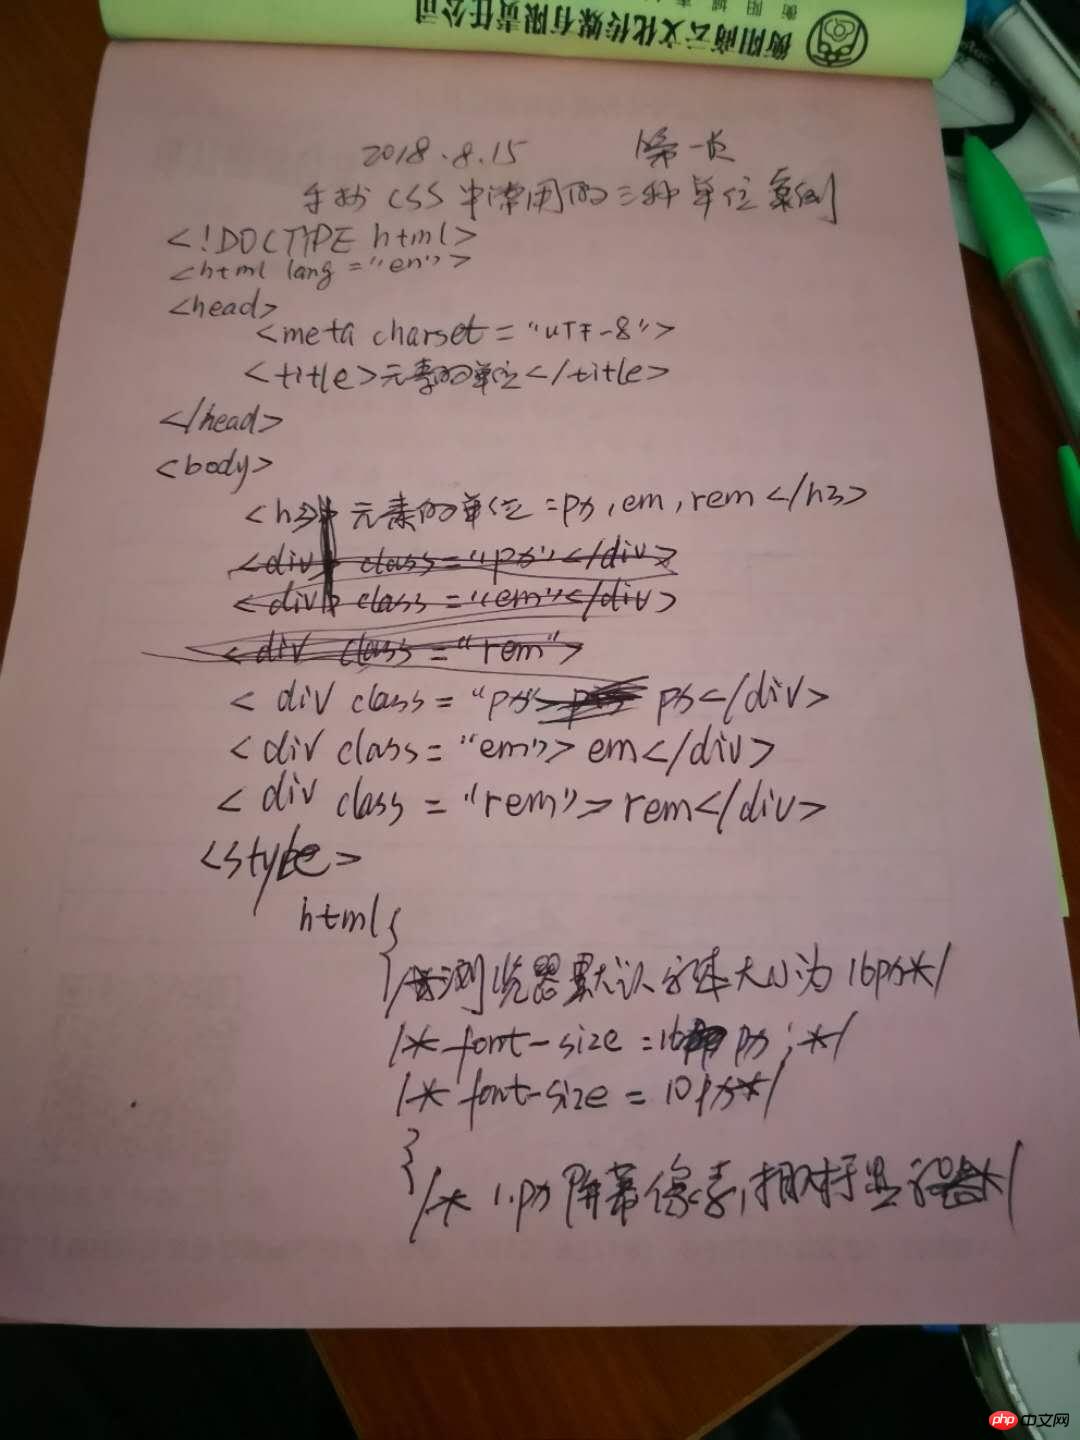 衡阳商云文化传媒有限责任公司
2018.8.15 第一页
手抄CSS中常用的三种单位案例
<!DOCTYPE html>
<html lang="en">
<head>
<meta charset="UTF-8">
<title>元素的单位</title>
</head>
<body>
<h3> 元素的单位=px,em,rem</h3>
<div> class="px"</div>
<div> class="em"</div>
<div class="rem">
<div class="px"> px</div>
<div class="em">em</div>
<div class="rem">rem</div>
<style>
html{
/*浏览器默认字体大小为16px*/
/*font-size=16px;*/
/*font-size=10px*/
}
/*1.px屏幕像素,相对于显示器*/
php中文网